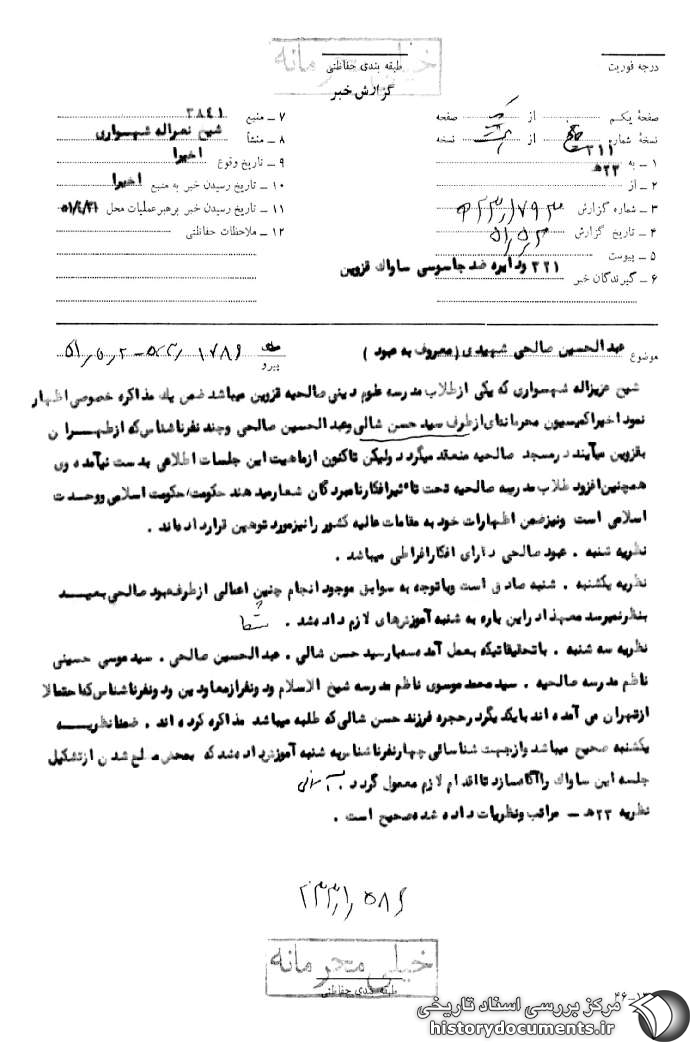 خیلی محرمانه
درجه فوریت
طبقه بندی حفاظتی
گزارش خبر
صفحهٔ یکم از صفحه
نسخهٔ شماره از نسخه
۱ ـ به ۳۱۱
۲ ـ از ۲۳ھ
۳ ـ شماره گزارش
۴ ـ تاریخ گزارش
۵ ـ پیوست
۶ ـ گیرندگان خبر ۳۲۱ ودایره ضد جاسوسی ساواك قزوین
۷ ـ منبع ۲۸۴۱
۸ ـ منشأ شیخ نصراله شهسواری
۹ ـ تاریخ وقوع اخیرا
۱۰ ـ تاریخ رسیدن خبر به منبع اخیرا
۱۱ ـ تاریخ رسیدن خبر برهبر عملیات محل ۵۱/۴/۳۱
۱۲ ـ ملاحظات حفاظتی
موضوع عبدالحسین صالحی شهیدی (معروف به عبود )
پیرو
شیخ عزیزاله شهسواری که یکی ازطلاب مدرسه علوم دینی صالحیه قزوین میباشد ضمن یك مذاکره خصوصی اظهار
نمود اخیراکمیسیون محرمانه‌ای ازطرف سید حسن شالی وعبدالحسین صالحی وچند نفرناشناس که ازطهـــران
بقزوین میآیند درمسجد صالحیه منعقد میگردد ولیکن تاکنون ازماهیت این جلسات اطلاعی بدست نیآمده وی
همچنین افزود طلاب مدرسه صالحیه تحت تأثیرافکارنامبردگان شعارمیدهند حکومت، حکومت اسلامی ووحدت
اسلامی است ونیزضمن اظهارات خود به مقامات عالیه کشور رانیزمورد توهین قرارداده‌اند .
نظریه شنبه . عبود صالحی دارای افکارافراطی میباشد .
نظریه یکشنبه . شنبه صادق است وباتوجه به سوابق موجود انجام چنین اعمالی ازطرف عبود صالحی بعیـــد
بنظرنمیرسد معهذا دراین باره به شنبه آموزش‌های لازم داده شد .
نظریه سه شنبه . باتحقیقاتیکه بعمل آمده سه بارسید حسن شالی . عبدالحسین صالحی . سید موسی حسینی
ناظم مدرسه صالحیه . سید محمد موسوی ناظم مدرسه شیخ الاسلام ودونفرازمعاودین ودونفرناشناس که احتمالا
ازتهران می آمده اند بایکدیگردرحجره فرزند حسن شالی که طلبه میباشد مذاکره کرده اند . ضمنا نظریـــه
یکشنبه صحیح میباشد وازجهت شناسائی چهارنفرناشناس به شنبه آموزش داده شد که بمحض مطلع شدن ازتشکیل
جلسه این ساواك راآگاه سازد تااقدام لازم معمول گردد .
نظریه ۲۳ھ ـ مراتب ونظریات داده شده صحیح است .
خیلی محرمانه
طبقه بندی حفاظتی
مرکز بررسی اسناد تاریخی
historydocuments.ir